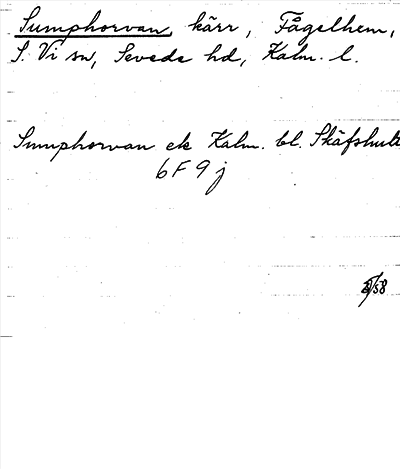 Sumphorvan, kärr, Fågelhem,
S. Vi sn, Sevede hd, Kalm. l.
Sumphorvan ek Kalm. bl. Skäfshult
6F9j
/58